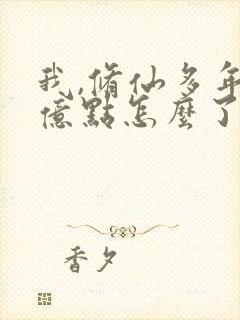 我,脩仙多年
億點怎麼了
香夕